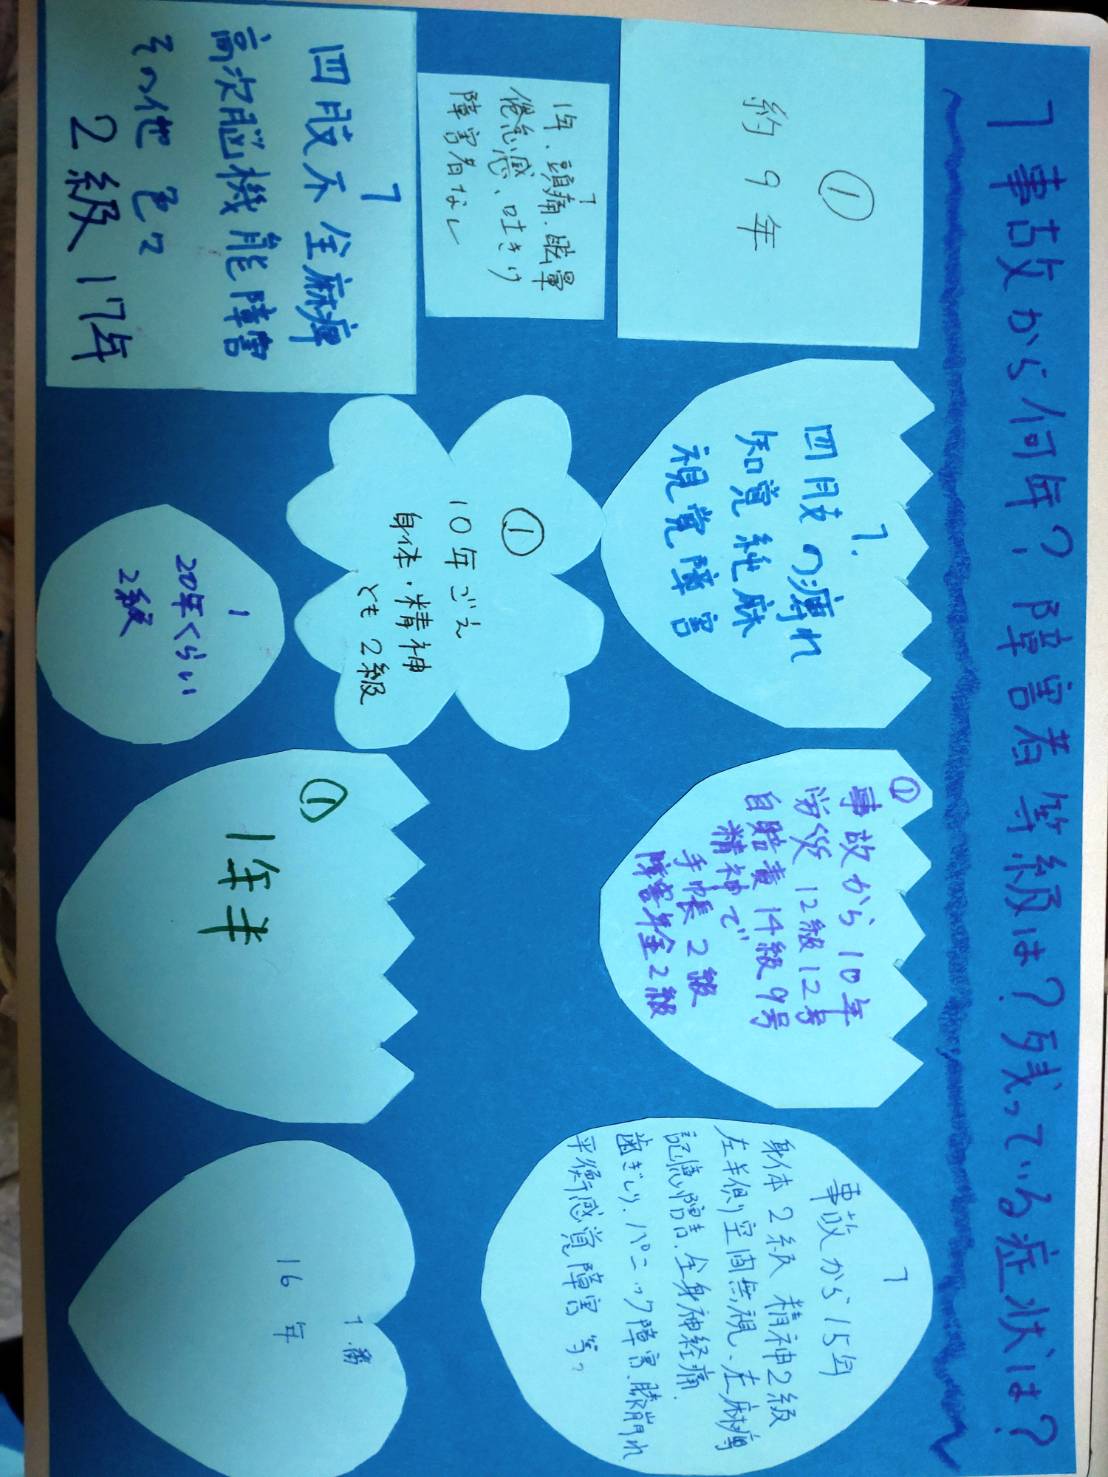 1 事故から何年?障害者等級は?残っている症状は?
①
約9年
1
1年、頭痛、眩暈
倦怠感、吐きけ
障害者なし
1
四肢不全麻痺
高次脳機能障害
その他 色々
2級 17年
1.
四肢の痺れ
知覚純麻
視覚障害
①
10年ごえ
身体・精神
とも2級
1
20年くらい
2級
①
事故から10年
労災 12級12号
自賠責 14級9号
精神で
手帳2級
障害年金2級
①
1年半
1
事故から15年
身体2級 精神2級
左半側空間無視、左麻痺
記憶障害、全身神経痛、
歯ぎしり、パニック障害、膝崩れ
平衡感覚障害 等々
1番
16年